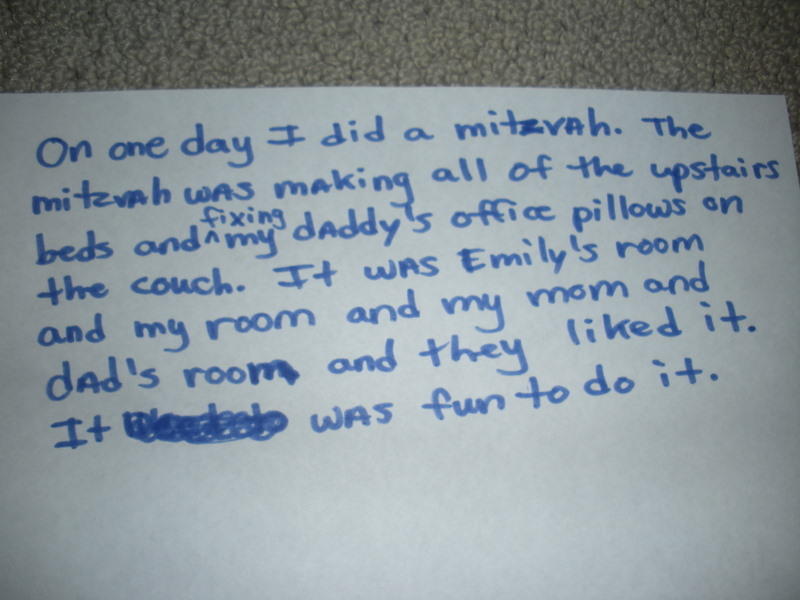 On one day I did a mitzvah. The
mitzvah was making all of the upstairs
beds and fixing my daddy's office pillows on
the couch. It was Emily's room
and my room and my mom and
dad's room and they liked it.
It was fun to do it.